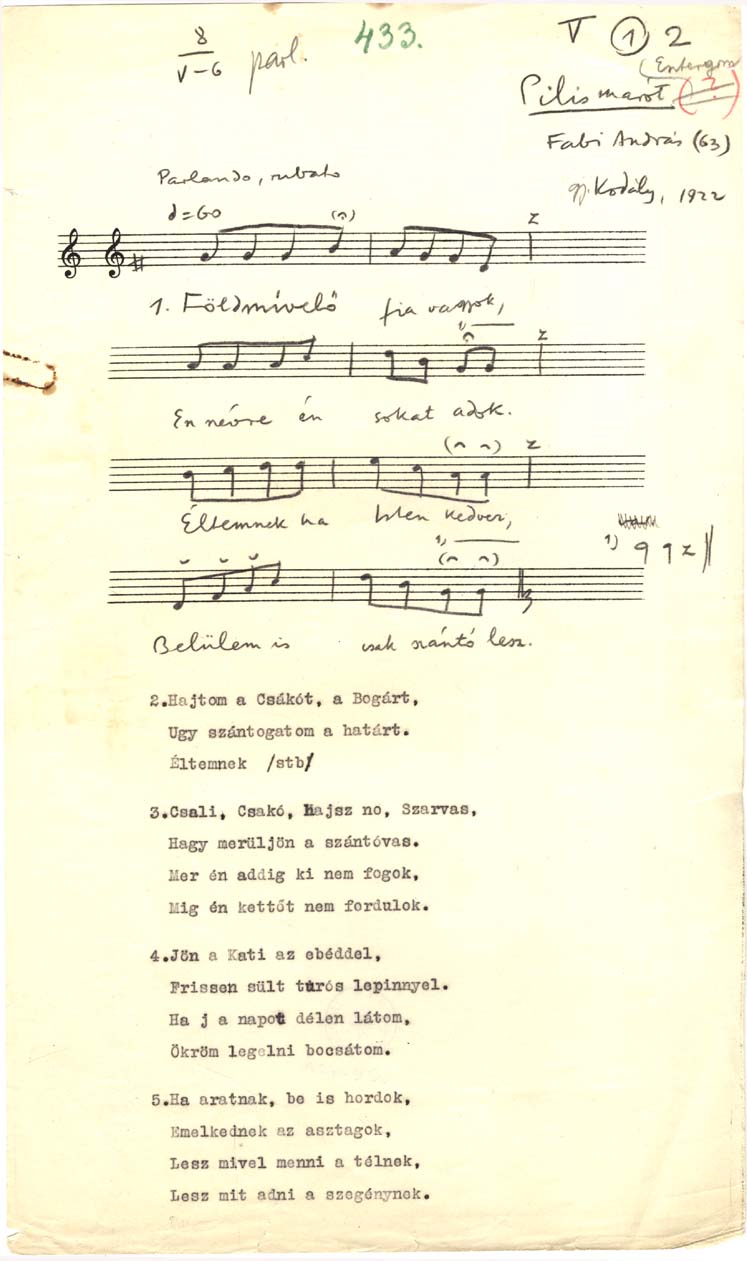 8
V-6 parl.
433.
V 1 2
(Esztergom
Pilismarót (?)
Fabi András (63)
gy. Kodály, 1922
Parlando, rubato
=60
1. Földmívelő fia vagyok,
1)
z
En névre én sokat adok.
z
Éltemnek ha Isten kedvez,
z
1)
1) z
Belülem is csak szántó lesz.
2.Hajtom a Csákót, a Bogárt,
Ugy szántogatom a határt.
Éltemnek /stb/
3.Csali, Csakó, Hajsz no, Szarvas,
Hagy merüljön a szántóvas.
Mer én addig ki nem fogok,
Mig én kettőt nem fordulok.
4.Jön a Kati az ebéddel,
Frissen sült túrós lepinnyel.
Ha j a napot délen látom,
Ökröm legelni bocsátom.
5.Ha aratnak, be is hordok,
Emelkednek az asztagok,
Lesz mivel menni a télnek,
Lesz mit adni a szegénynek.